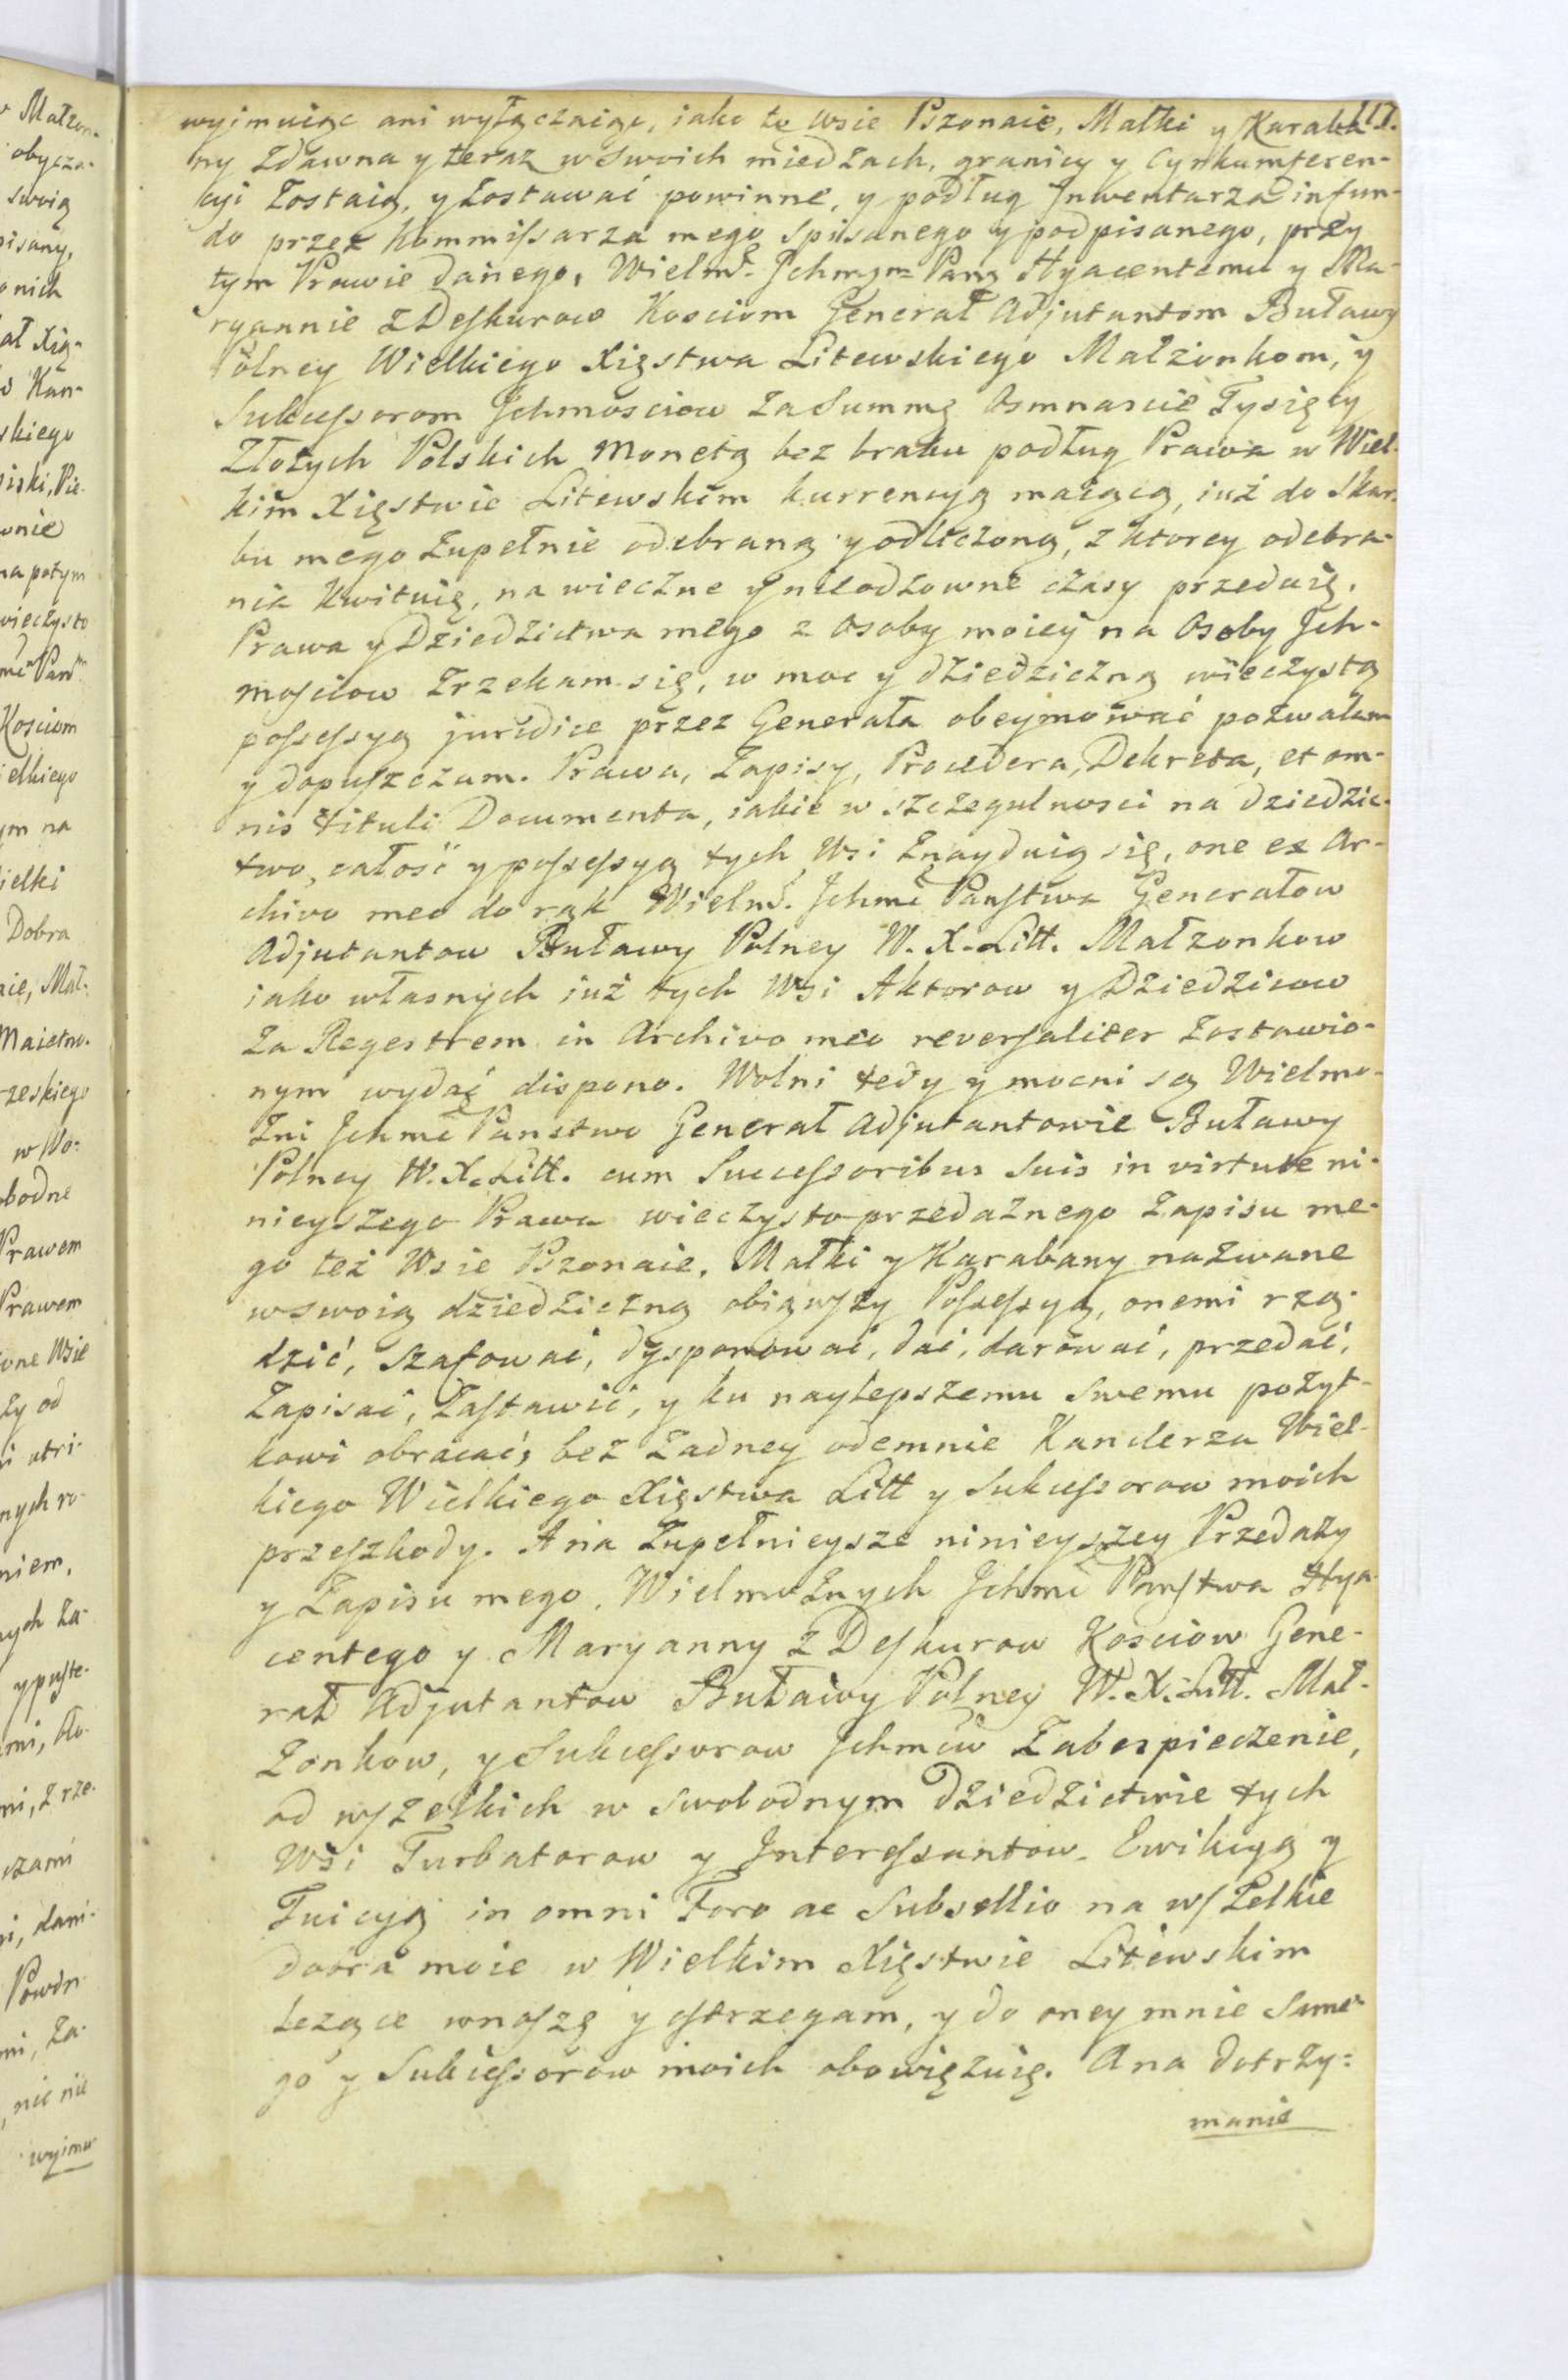 wyimuiąc ani wyłączaiąc, iako te wsie Pszonaie, Małki y Karaba-
ny zdawna y teraz w swoich miedzach, granicy y Cyrkumferen-
cyi zostaią, y zostawać powinne, y podług Inwentarza in fun-
do przez Kommissarza mego spisanego y podpisanego, przy
tym Prawie danego, Wielm. Ichmm Panọ Hyacentemu y Ma-
ryannie z Deszkurow Kosciom Generał Adjutantom Buławy
Polney Wielkiego Xięstwa Litewskiego Małżonkom, y
Sukcessorom Ichmosciow za Summę Osmnascie Tysięcy
Złotych Polskich Monetą bez braku podług Prawa w Wiel-
kim Xięstwie Litewskim kurrencyą maiącą, iuż do Skar-
bu mego zupełnie odebraną y odliczoną, z ktorey odebra-
nia kwituię, na wieczne y nieodzowne czasy przedaię.
Prawa y Dziedzictwa mego z Osoby moiey na Osoby Ich-
mosciow zrzekam się, w moc y dziedziczną wieczystą
possessyą juridice przez Generała obeymować pozwalam
y dopuszczam. Prawa, Zapisy, Procedera, Dekreta, et om-
nis tituli Documenta, iakie w szczegulnosci na dziedzic-
two, całość y possessyą tych Wsi znayduią się, one ex Ar-
chivo meo do rąk Wielm. Ichmć Państwa Generałow
Adjutantow Buławy Polney W. X. Litt. Małżonkow
iako własnych iuż tych Wsi Aktorow y Dziedzicow
za Regestrem in Archivo meo reversaliter zostawio-
nym wydać dispono. Wolni tedy y mocni są Wielmo-
żni Ichmć Panstwo Generał Adjutantowie Buławy
Polney W. X. Litt. cum Successoribus suis in virtute ni-
nieyszego Prawa wieczysto przedażnego Zapisu me-
go też Wsie Pszonaie, Małki y Karabany nazwane
w swoią dziedziczną obiąwszy Possessyą, onemi rzą-
dzić, szafować, dysponować, dać, darować, przedać,
zapisać, zastawić, y ku naylepszemu swemu pożyt-
kowi obracać, bez żadney odemnie Kanclerza Wiel-
kiego Wielkiego Xięstwa Litt y Sukcessorow moich
przeszkody. A na zupełnieysze ninieyszey Przedaży
y Zapisu mego, Wielmożnych Ichmć Państwa Hya-
centego y Maryanny z Deszkurow Kosciow Gene-
rał Adjutantow Buławy Polney W. X. Litt. Mał-
żonkow, y Sukcessorow Ichmciow Zabespieczenie,
od wszelkich w swobodnym dziedzictwie tych
Wsi Turbatorow y Interessantow. Ewikcyą y
Tuicyą in omni Foro ac Subsellio na wszelkie
dobra moie w Wielkim Xięstwie Litewskim
leżące wnoszę y ostrzegam, y do oney mnie same-
go y Sukcessorow moich obowięzuię. A na dotrzy-
manie